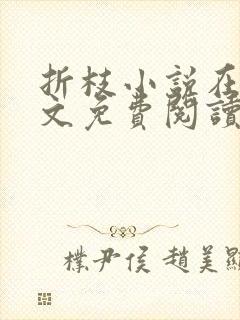 折枝小説在
文免費閱讀
樸尹侯 趙美顯